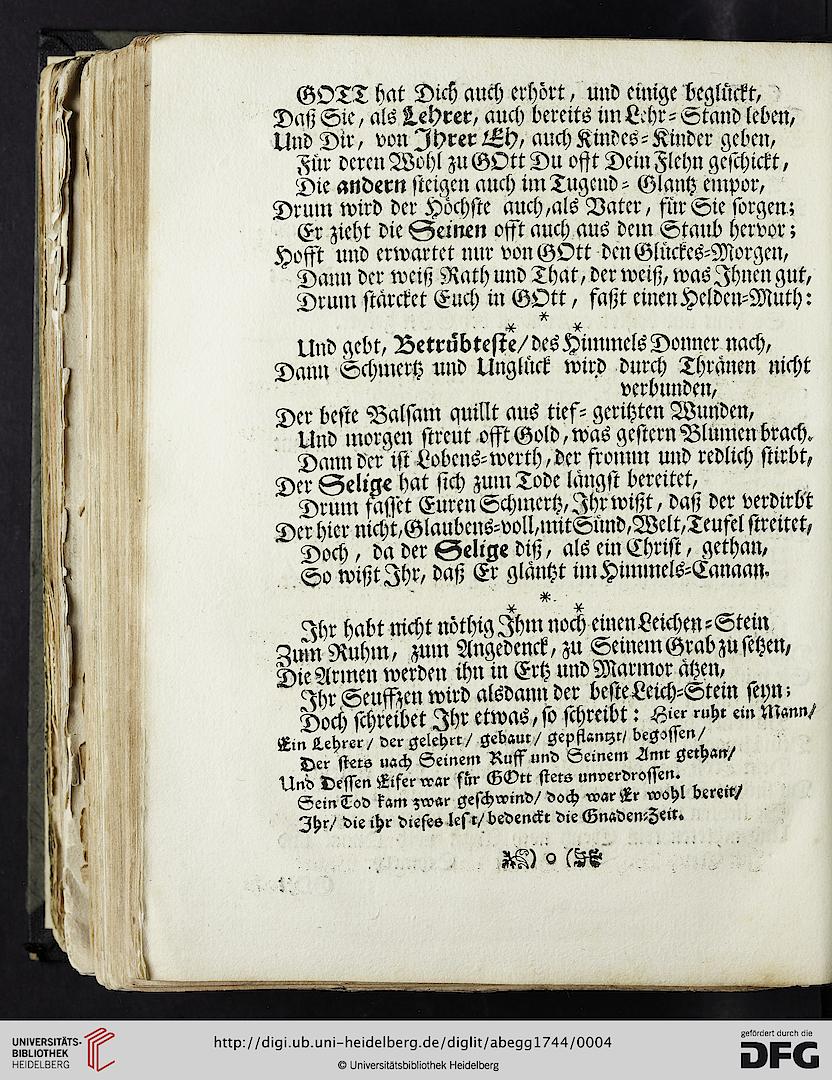 GOTT hat Dich auch erhört, und einige beglückt,
Daß Sie, als Lehrer, auch bereits im Lehr-Stand leben,
Und Dir, von Ihrer Eh, auch Kindes-Kinder geben,
Für deren Wohl zu GOtt Du offt Dein Flehn geschickt,
Die andern steigen auch im Tugend-Glantz empor,
Drum wird der Höchste auch, als Vater, für Sie sorgen;
Er zieht die Seinen offt auch aus dem Staub hervor;
Hofft und erwartet nur von GOtt den Glückes-Morgen,
Dann der weiß Rath und That, der weiß, was Ihnen gut,
Drum stärcket Euch in GOtt, faßt einen Helden-Muth:
* * *
Und gebt, Betrübteste/ des Himmels Donner nach,
Dann Schmertz und Unglück wird durch Thränen nicht
verbunden,
Der beste Balsam quillt aus tief-geritzten Wunden,
Und morgen streut offt Gold, was gestern Blumen brach.
Dann der ist Lobens-werth, der fromm und redlich stirbt,
Der Selige hat sich zum Tode längst bereitet,
Drum fasset Euren Schmertz, Ihr wißt, daß der verdirbt
Der hier nicht, Glaubens-voll, mit Sünd, Welt, Teufel streitet,
Doch, da der Selige diß, als ein Christ, gethan,
So wißt Ihr, daß Er gläntzt im Himmels-Canaan.
* * *
Ihr habt nicht nöthig Ihm noch einen Leichen-Stein
Zum Ruhm, zum Angedenck, zu Seinem Grab zu setzen,
Die Armen werden ihn in Ertz und Marmor ätzen,
Ihr Seuffzen wird alsdann der beste Leich-Stein seyn;
Doch schreibet Ihr etwas, so schreibt: Hier ruht ein Mann/
Ein Lehrer/ der gelehrt/ gebaut/ gepflantzt/ begossen/
Der stets nach Seinem Ruff und Seinem Amt gethan/
Und Dessen Eifer war für GOtt stets unverdrossen.
Sein Tod kam zwar geschwind/ doch war Er wohl bereit/
Ihr/ die ihr dieses lest/ bedenckt die Gnaden-Zeit.
) o (
UNIVERSITÄTS-
BIBLIOTHEK
HEIDELBERG
http://digi.ub.uni-heidelberg.de/diglit/abegg1744/0004
© Universitätsbibliothek Heidelberg
gefördert durch die
DFG